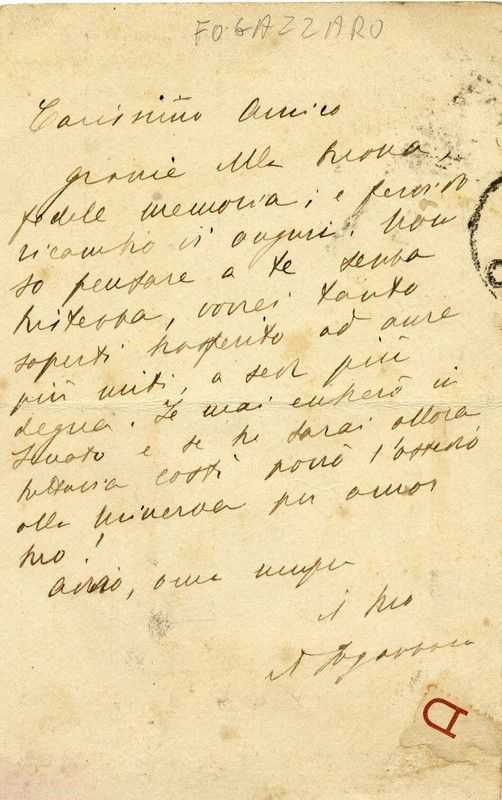 FOGAZZARO
Carissimo Amico
grazie della buona,
fedele memoria; e fervido
ricambio di auguri. Non
so pensare a te senza
tristezza, vorrei tanto
saperti trasferito ad aure
più miti, a sede più
degna. Se mai entrerò in
Senato e se tu sarai allora
tuttavia costì porrò l'assedio
alla Minerva per amor
tuo!
Addio, ama sempre
il tuo
A Fogazzaro
D